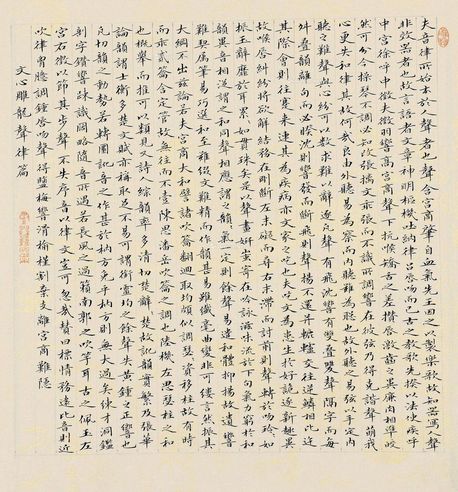 夫音律所始本於人聲者也聲含宮商肇自血氣先王因之以製樂歌故知器寫人聲
非效器者也故言語者文章神明樞機吐納律呂脣吻而已古之教歌先揆以法使疾呼
中宮徐呼中徵夫徵羽響高宮商聲下抗喉矯舌之差攢脣激齒之異廉肉相準皎
然可分今操琴不調必知改張摛文乖張而不識所調響在彼弦乃得克諧聲萌我
心更失和律其故何哉良由外聽易為察而內聽難為聰也故外聽之易弦以手定內
聽之難聲與心紛可以數求難以辭逐凡聲有飛沈響有雙疊雙聲隔字而每
舛疊韻離句而必睽沈則響發而斷飛則聲颺不還並轆轤交往逆鱗相比迕
其際會則往蹇來連其為疾病亦文家之吃也夫吃文為患生於好詭逐新趣異
故喉脣糾紛將欲解結務在剛斷左礙而尋右末滯而討前則聲轉於吻玲玲如
振玉辭靡於耳纍纍如貫珠矣是以聲畫妍蚩寄在吟詠滋味流於下句氣力窮於和
韻異音相從謂之和同聲相應謂之韻韻氣一定則餘聲易遣和體抑揚故遺響
難契屬筆易巧選和至難綴文難精而作韻甚易雖纖毫曲變非可縷言然振其
大綱不出茲論若夫宮商大和譬諸吹籥翻迴取均頗似調瑟瑟資移柱故有時
而乖貳籥含定管故無往而不壹陳思潘岳吹籥之調也陸機左思瑟柱之和
也概舉而推可以類見又詩人綜韻率多清切楚辭辭楚故訛韻實繁及張華
論韻謂士衡多楚文賦亦稱取足不易可謂銜靈均之餘聲失黃鍾之正響也
凡切韻之動勢若轉圜訛音之作甚於枘方免乎枘方則無大過矣練才洞鑒
剖字鑽響疎識闊略隨音所遇若長風之過籟南郭之吹竽耳古之佩玉左
宮右徵以節其步聲不失序音以律文豈可忽哉贊曰標情務遠比音則近
吹律胸臆調鍾脣吻聲得鹽梅響滑榆槿割棄支離宮商難隱
文心雕龍聲律篇